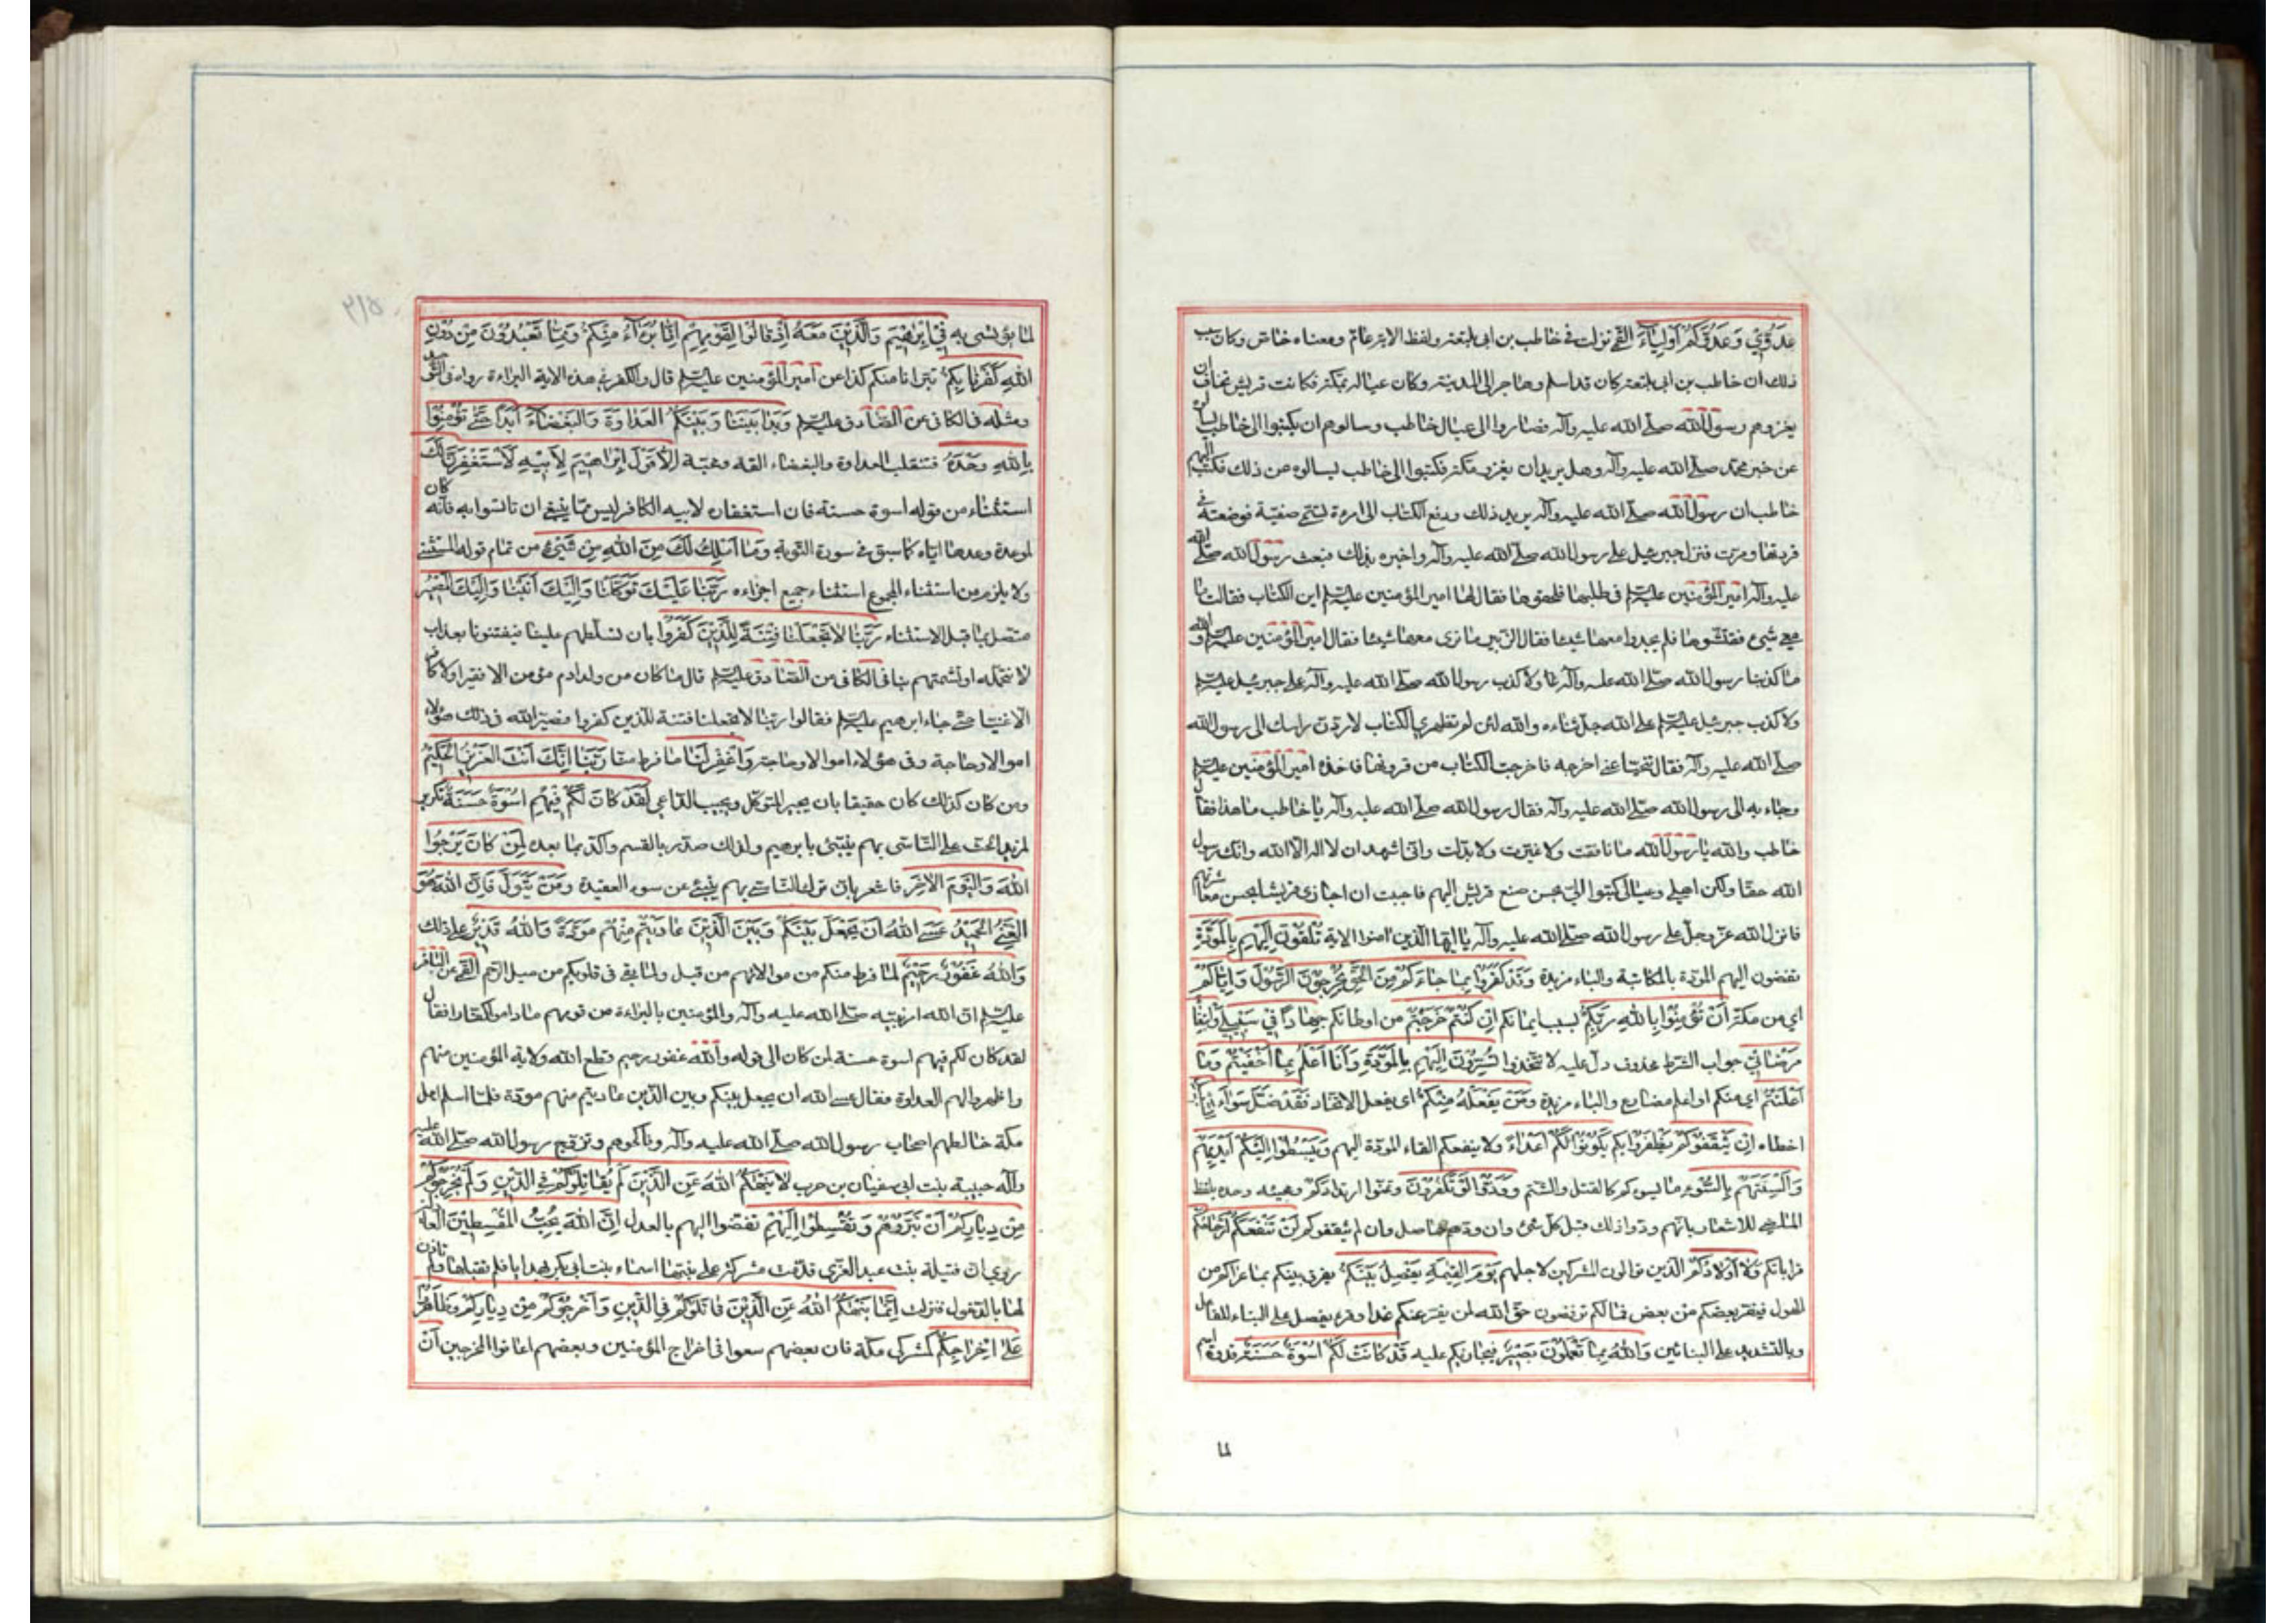 عَدُوّي وَعَدُوَّكُمْ أَوْلِيٰاءَ القمّي نزلت في خاطب بن ابي بلتعة ولفظ الاية عامّ ومعناه خاص وكان سبب
ذلك ان خاطب بن ابي بلتعة كان قد اسلم وهاجر الى المدينة وكان عياله بمكة فكانت قريش تخاف ان
يغزوهم رسول الله صلّى الله عليه وآله فصاروا الى عيال خاطب وسالوهم ان يكتبوا الى خاطب يسالوه
عن خبر محمّد صلّى الله عليه وآله وهل يريد ان يغزو مكة فكتبوا الى خاطب يسالوه عن ذلك فكتب اليهم
خاطب ان رسول الله صلّى الله عليه وآله يريد ذلك ودفع الكتاب الى امرءة تسمّى صفيّة فوضعته في
قرونها ومرّت فنزل جبرئيل على رسول الله صلّى الله عليه وآله واخبره بذلك فبعث رسول الله صلّى الله
عليه وآله امير المؤمنين عليه السلم في طلبها فلحقوها فقال لها امير المؤمنين عليه السلم اين الكتاب فقالت ما
معي شيء ففتّشوها فلم يجدوا معها شيئا فقال الزّبير ما نرى معها شيئا فقال امير المؤمنين عليه السلم والله
ما كذبنا رسول الله صلّى الله عليه وآله ولا كذب رسول الله صلّى الله عليه وآله على جبرئيل عليه السلم
ولا كذب جبرئيل عليه السلم على الله جلّ ثناءه والله لئن لم تظهري الكتاب لاردّن راسك الى رسول الله
صلّى الله عليه وآله فقال تنحّيا عنّي اخرجه فاخرجت الكتاب من قرونها فاخذه امير المؤمنين عليه السلم
وجاء به الى رسول الله صلّى الله عليه وآله فقال رسول الله صلّى الله عليه وآله يا خاطب ما هذا فقال
خاطب والله يا رسول الله ما نافقت ولا غيّرت ولا بدّلت وانّي اشهد ان لا اله الّا الله وانّك رسول
الله حقّا ولكن اهلي وعيالي كتبوا اليّ بحسن صنع قريش اليهم فاحببت ان اجازي قريشا بحسن معاشرتهم
فانزل الله عزّ وجلّ على رسول الله صلّى الله عليه وآله يا ايّها الّذين امنوا الاية تُلْقُونَ إِلَيْهِمْ بِالْمَوَدَّةِ
تفضون اليهم المودّة بالمكاتبة والباء مزيدة وَقَدْ كَفَرُوا بِمٰا جٰاءَكُمْ مِنَ الْحَقِّ يُخْرِجُونَ الرَّسُولَ وَإِيّٰاكُمْ
اي من مكة أَنْ تُؤْمِنُوا بِاللهِ رَبِّكُمْ بسبب ايمانكم إِنْ كُنْتُمْ خَرَجْتُمْ من اوطانكم جِهٰاداً فِي سَبِيلِي وَابْتِغٰاءَ
مَرْضٰاتِي جواب الشرط محذوف دلّ عليه لا تتّخذوا تُسِرُّونَ إِلَيْهِمْ بِالْمَوَدَّةِ وَأَنَا أَعْلَمُ بِمٰا أَخْفَيْتُمْ وَمٰا
أَعْلَنْتُمْ اي منكم او اعلم مضارع والباء مزيدة وَمَنْ يَفْعَلْهُ مِنْكُمْ اي يفعل الاتّخاذ فَقَدْ ضَلَّ سَوٰاءَ السَّبِيلِ
اخطاه إِنْ يَثْقَفُوكُمْ يظفروا بكم يَكُونُوا لَكُمْ أَعْدٰاءً ولا ينفعكم القاء المودّة اليهم وَيَبْسُطُوا إِلَيْكُمْ أَيْدِيَهُمْ
وَأَلْسِنَتَهُمْ بِالسُّوءِ ما يسوكم كالقتل والشتم وَوَدُّوا لَوْ تَكْفُرُونَ وتمنّوا ارتدادكم ومجيئه وحده بلفظ
الماضي للاشعار بانّهم ودّوا ذلك قبل كلّ شيء وان ودهم حاصل وان لم يثقفوكم لَنْ تَنْفَعَكُمْ أَرْحٰامُكُمْ
قراباتكم وَلٰا أَوْلٰادُكُمْ الّذين توالون المشركين لاجلهم يَوْمَ الْقِيٰمَةِ يَفْصِلُ بَيْنَكُمْ يفرق بينكم بما عراكم من
الهول فيفرّ بعضكم من بعض فما لكم ترفضون حقّ الله لمن يفرّ عنكم غدا وقرء يفصل على البناء للفاعل
وبالتشديد على البنائين وَاللهُ بِمٰا تَعْمَلُونَ بَصِيرٌ فيجازيكم عليه قَدْ كٰانَتْ لَكُمْ أُسْوَةٌ حَسَنَةٌ قدوة اسم
لما
لما يؤتسى به فِي إِبْرٰهِيمَ وَالَّذِينَ مَعَهُ إِذْ قٰالُوا لِقَوْمِهِمْ إِنّٰا بُرَآءُ مِنْكُمْ وَمِمّٰا تَعْبُدُونَ مِنْ دُونِ
اللهِ كَفَرْنٰا بِكُمْ تبرّانا منكم كذا عن امير المؤمنين عليه السلم قال والكفر في هذه الاية البراءة رواه في التوحيد
ومثله في الكافي عن الصّادق عليه السلم وَبَدٰا بَيْنَنٰا وَبَيْنَكُمُ الْعَدٰاوَةُ وَالْبَغْضٰاءُ أَبَداً حَتّٰى تُؤْمِنُوا
بِاللهِ وَحْدَهُ فتنقلب العداوة والبغضاء الفة ومحبّة إِلّٰا قَوْلَ إِبْرٰاهِيمَ لِأَبِيهِ لَأَسْتَغْفِرَنَّ لَكَ
استثناء من قوله اسوة حسنة فان استغفاره لابيه الكافر ليس ممّا ينبغي ان تاتسوا به فانّه كان
لموعدة وعدها ايّاه كما سبق في سورة التّوبة وَمٰا أَمْلِكُ لَكَ مِنَ اللهِ مِنْ شَيْءٍ من تمام قوله المستثنى
ولا يلزم من استثناء المجموع استثناء جميع اجزاءه رَبَّنٰا عَلَيْكَ تَوَكَّلْنٰا وَإِلَيْكَ أَنَبْنٰا وَإِلَيْكَ الْمَصِيرُ
متّصل بما قبل الاستثناء رَبَّنٰا لٰا تَجْعَلْنٰا فِتْنَةً لِلَّذِينَ كَفَرُوا بان تسلّطهم علينا فيفتنونا بعذاب
لا نتحمّله او لشمتهم بنا في الكافي عن الصّادق عليه السلم قال ما كان من ولد ادم مؤمن الا فقيرا ولا كافر
الا غنيّا حتّى جاء ابرهيم عليه السلم فقالوا ربّنا لا تجعلنا فتنة للّذين كفروا فصيّر الله في ذلك هؤلاء
اموالا وحاجة وفي هؤلاء اموالا وحاجة وَاغْفِرْ لَنٰا ما فرط منّا رَبَّنٰا إِنَّكَ أَنْتَ الْعَزِيزُ الْحَكِيمُ
ومن كان كذلك كان حقيقا بان يجير المتوكّل ويجيب الدّاعي لَقَدْ كٰانَ لَكُمْ فِيهِمْ أُسْوَةٌ حَسَنَةٌ تكرير
لمزيد الحثّ على التّاسّي بهم يتبنّى بابرهيم ولذلك صدّر بالقسم واكّد بما بعده لِمَنْ كٰانَ يَرْجُوا
اللهَ وَالْيَوْمَ الْآخِرَ فاشعر بانّ ترك التّاسّي بهم ينبئ عن سوء العقيدة وَمَنْ يَتَوَلَّ فَإِنَّ اللهَ هُوَ
الْغَنِيُّ الْحَمِيدُ عَسَى اللهُ أَنْ يَجْعَلَ بَيْنَكُمْ وَبَيْنَ الَّذِينَ عٰادَيْتُمْ مِنْهُمْ مَوَدَّةً وَاللهُ قَدِيرٌ على ذلك
وَاللهُ غَفُورٌ رَحِيمٌ لما فرط منكم من موالاتهم من قبل ولما بقي في قلوبكم من ميل الرّحم القمّي عن الباقر
عليه السلم انّ الله امر نبيّه صلّى الله عليه وآله والمؤمنين بالبراءة من قومهم ما داموا كفّارا فقال
لقد كان لكم فيهم اسوة حسنة لمن كان الى قوله والله غفور رحيم قطع الله ولاية المؤمنين منهم
واظهروا لهم العداوة فقال عسى الله ان يجعل بينكم وبين الّذين عاديتم منهم مودّة فلمّا اسلم اهل
مكة خالطهم اصحاب رسول الله صلّى الله عليه وآله وناكحوهم وتزوّج رسول الله صلّى الله عليه
وآله حبيبة بنت ابي سفيان بن حرب لٰا يَنْهٰكُمُ اللهُ عَنِ الَّذِينَ لَمْ يُقٰاتِلُوكُمْ فِي الدِّينِ وَلَمْ يُخْرِجُوكُمْ
مِنْ دِيٰارِكُمْ أَنْ تَبَرُّوهُمْ وَتُقْسِطُوا إِلَيْهِمْ تفضوا اليهم بالعدل إِنَّ اللهَ يُحِبُّ الْمُقْسِطِينَ العادلين
روي ان قتيلة بنت عبد العزّى قدّمت مشركة على بنتها اسماء بنت ابي بكر بهدايا فلم تقبلها ولم تاذن
لها بالدّخول فنزلت إِنَّمٰا يَنْهٰكُمُ اللهُ عَنِ الَّذِينَ قٰاتَلُوكُمْ فِي الدِّينِ وَأَخْرَجُوكُمْ مِنْ دِيٰارِكُمْ وَظٰاهَرُوا
عَلٰى إِخْرٰاجِكُمْ كمشركي مكة فان بعضهم سعوا في اخراج المؤمنين وبعضهم اعانوا المخرجين أَنْ